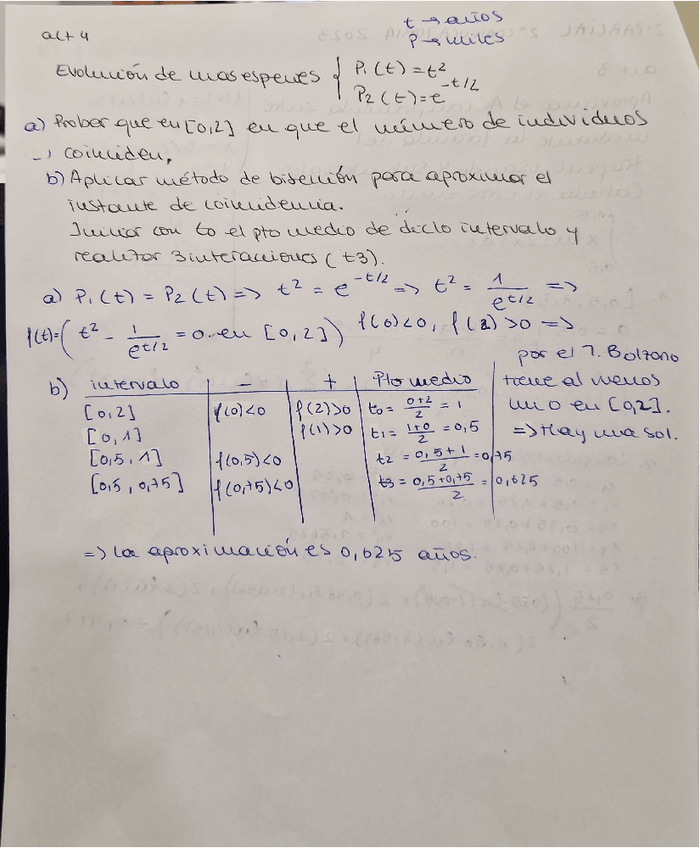 t → años
act 4
P → miles
Evolución de unas especies { P₁(t) = t²
P₂(t) = e^{-t/2}
a) Probar que en [0,2] en que el número de individuos
coinciden.
b) Aplicar método de bisección para aproximar el
instante de coincidencia.
Iniciar con to el pto medio de dicho intervalo y
realizar 3 interaciones (t3).
a) P₁(t) = P₂(t) => t² = e^{-t/2} => t² = 1/e^{t/2} =>
f(t) = (t² - 1/e^{t/2} = 0 en [0,2]) f(0)<0, f(2)>0 =>
por el T. Bolzano
tiene al menos
uno en [0,2].
=> Hay una sol.
b) intervalo | - | + | Pto medio
[0,2] | f(0)<0 | f(2)>0 | t0 = 0+2/2 = 1
[0,1] | | f(1)>0 | t1 = 1+0/2 = 0,5
[0,5, 1] | f(0,5)<0 | | t2 = 0,5+1/2 = 0,75
[0,5, 0,75] | f(0,75)<0 | | t3 = 0,5+0,75/2 = 0,625
=> La aproximación es 0,625 años.